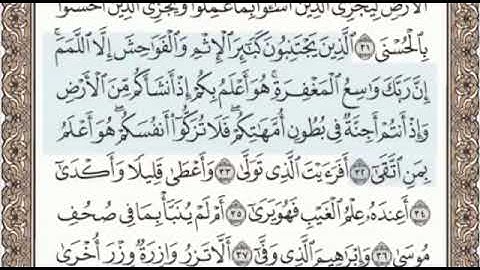 الْأَرْضِ لِيَجْزِيَ الَّذِينَ أَسَٰٓـُٔوا۟ بِمَا عَمِلُوا۟ وَيَجْزِيَ الَّذِينَ أَحْسَنُوا۟
بِالْحُسْنَى ٣١ الَّذِينَ يَجْتَنِبُونَ كَبَٰٓئِرَ الْإِثْمِ وَالْفَوَٰحِشَ إِلَّا اللَّمَمَ ۚ
إِنَّ رَبَّكَ وَٰسِعُ الْمَغْفِرَةِ ۚ هُوَ أَعْلَمُ بِكُمْ إِذْ أَنشَأَكُم مِّنَ الْأَرْضِ
وَإِذْ أَنتُمْ أَجِنَّةٌ فِى بُطُونِ أُمَّهَٰتِكُمْ ۖ فَلَا تُزَكُّوٓا۟ أَنفُسَكُمْ ۖ هُوَ أَعْلَمُ
بِمَنِ اتَّقَىٰٓ ٣٢ أَفَرَءَيْتَ الَّذِى تَوَلَّىٰ ٣٣ وَأَعْطَىٰ قَلِيلًا وَأَكْدَىٰٓ
٣٤ أَعِندَهُۥ عِلْمُ الْغَيْبِ فَهُوَ يَرَىٰٓ ٣٥ أَمْ لَمْ يُنَبَّأْ بِمَا فِى صُحُفِ
مُوسَىٰ ٣٦ وَإِبْرَٰهِيمَ الَّذِى وَفَّىٰٓ ٣٧ أَلَّا تَزِرُ وَازِرَةٌ وِزْرَ أُخْرَىٰ